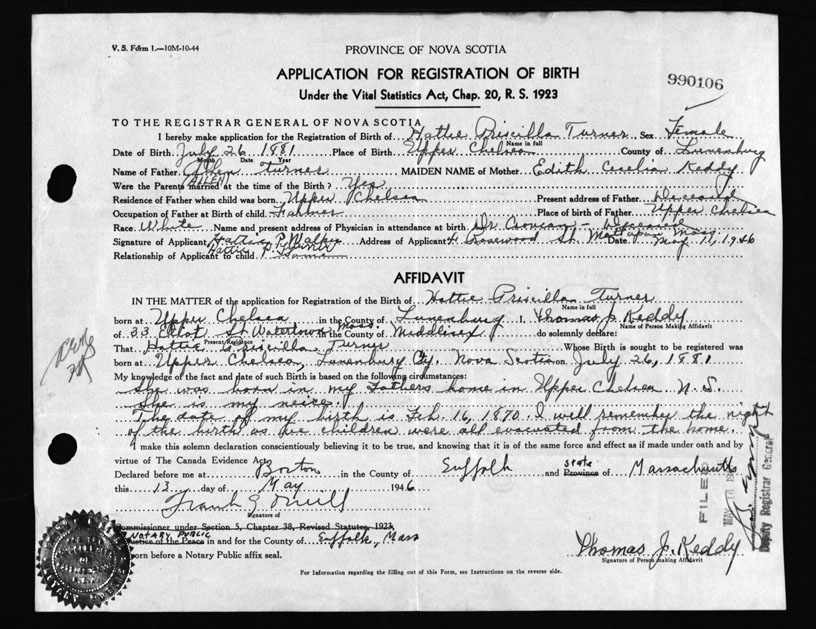 V. S. Form 1.—10M-10-44
PROVINCE OF NOVA SCOTIA
APPLICATION FOR REGISTRATION OF BIRTH
990106
Under the Vital Statistics Act, Chap. 20, R. S. 1923
TO THE REGISTRAR GENERAL OF NOVA SCOTIA
I hereby make application for the Registration of Birth of Hattie Priscilla Turner Sex Female
Name in full
Date of Birth July 26 1881 Place of Birth Upper Chelsea County of Lunenburg
Month Date Year
Name of Father Turner MAIDEN NAME of Mother Edith Cecelia Keddy
(ALLEN)
Were the Parents married at the time of the Birth? Yes
Residence of Father when child was born Upper Chelsea Present address of Father Deceased
Occupation of Father at Birth of child Farmer Place of birth of Father Upper Chelsea
Race White Name and present address of Physician in attendance at birth Dr - Deceased
Signature of Applicant Hattie P. Address of Applicant Rosewood St. Mattapan Mass Date May 11, 1946
Relationship of Applicant to child
AFFIDAVIT
IN THE MATTER of the application for Registration of the Birth of Hattie Priscilla Turner
Name in full
born at Upper Chelsea in the County of Lunenburg I, Thomas J. Keddy
Name of Person Making Affidavit
of 33 St. Watertown Mass. in the County of Middlesex do solemnly declare:
Present Residence
That Hattie Priscilla Turner Whose Birth is sought to be registered was
born at Upper Chelsea, Lunenburg Cty. Nova Scotia on July 26, 1881
My knowledge of the fact and date of such Birth is based on the following circumstances:
She was born in my Fathers home in Upper Chelsea N. S.
She is my neice.
The date of my birth is Feb. 16, 1870. I well remember the night
of the birth as we children were all evacuated from the home.
I make this solemn declaration conscientiously believing it to be true, and knowing that it is of the same force and effect as if made under oath and by
virtue of The Canada Evidence Act.
Declared before me at Boston in the County of Suffolk and state Province of Massachusetts
this 13 day of May 1946
Frank
Signature of
Commissioner under Section 5, Chapter 38, Revised Statutes 1923
NOTARY PUBLIC
Justice of the Peace in and for the County of Suffolk, Mass
born before a Notary Public affix seal.
Thomas J. Keddy
Signature of Person making Affidavit
For Information regarding the filling out of this Form, see Instructions on the reverse side.
FILED
Deputy Registrar General